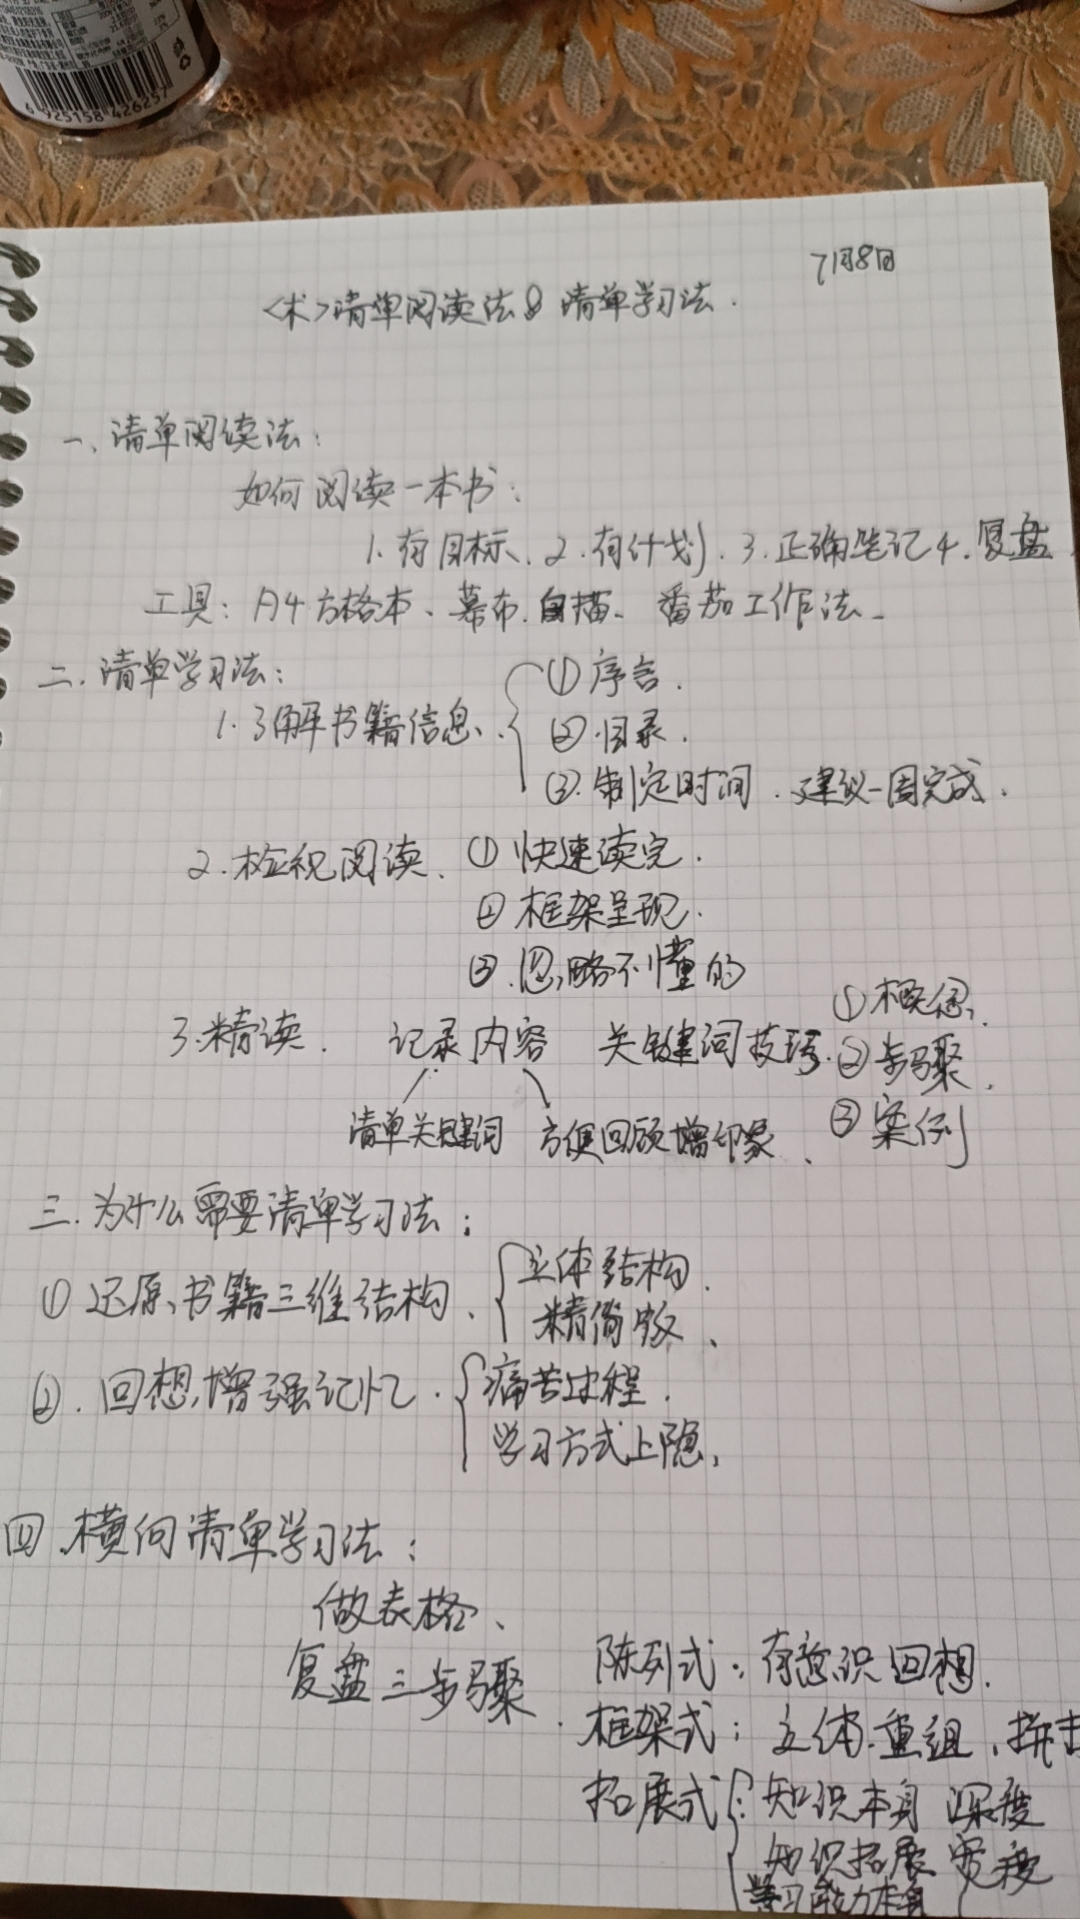 6 925158 426257
7月8日
<术>清单阅读法& 清单学习法.
一、清单阅读法:
如何阅读一本书:
1.有目标、2.有计划、3.正确笔记4.复盘
工具: A4方格本、幕布、白描、番茄工作法、
二、清单学习法:
1.了解书籍信息、
①序言.
②.目录.
③.制定时间、建议一周完成.
2.检视阅读、①快速读完.
②框架呈现.
③.忽略不懂的
3.精读. 记录内容 关键词技巧.
①概念、
②步骤、
③案例
清单关键词 方便回顾增印象、
三.为什么需要清单学习法:
①还原书籍三维结构、
立体结构、
精简版、
②.回想增强记忆.
痛苦过程.
学习方式上隐、
四、横向清单学习法:
做表格、
复盘三步骤.
陈列式:有意识回想.
框架式:立体、重组、拼
拓展式:知识本身 深度
知识拓展 宽度
学习能力本身